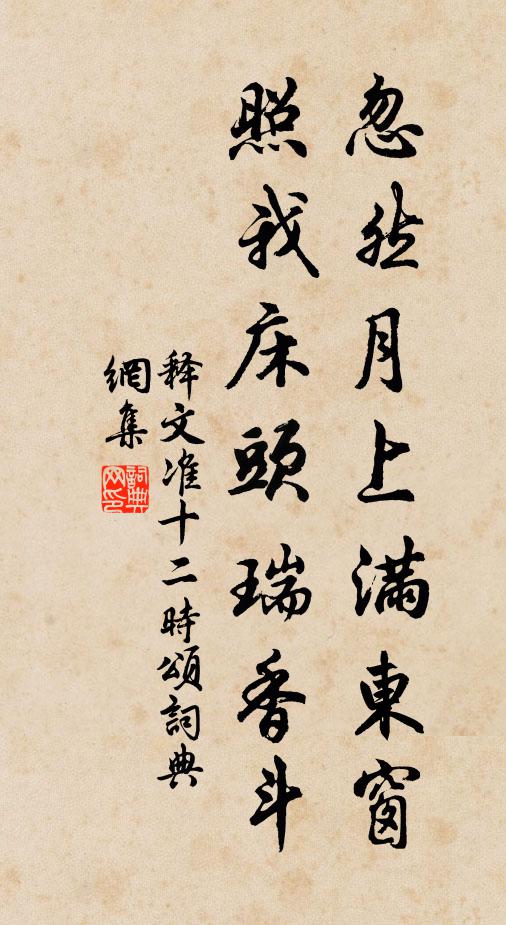 忽然月上滿東窗
照我床頭瑞香斗
释文准十二時頌詞典
網集
詞典
网印